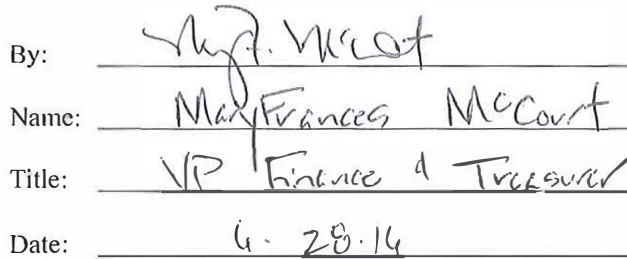 By: MryF. McCourt
Name: MaryFrances McCourt
Title: VP Finance & Treasurer
Date: 4. 28.14